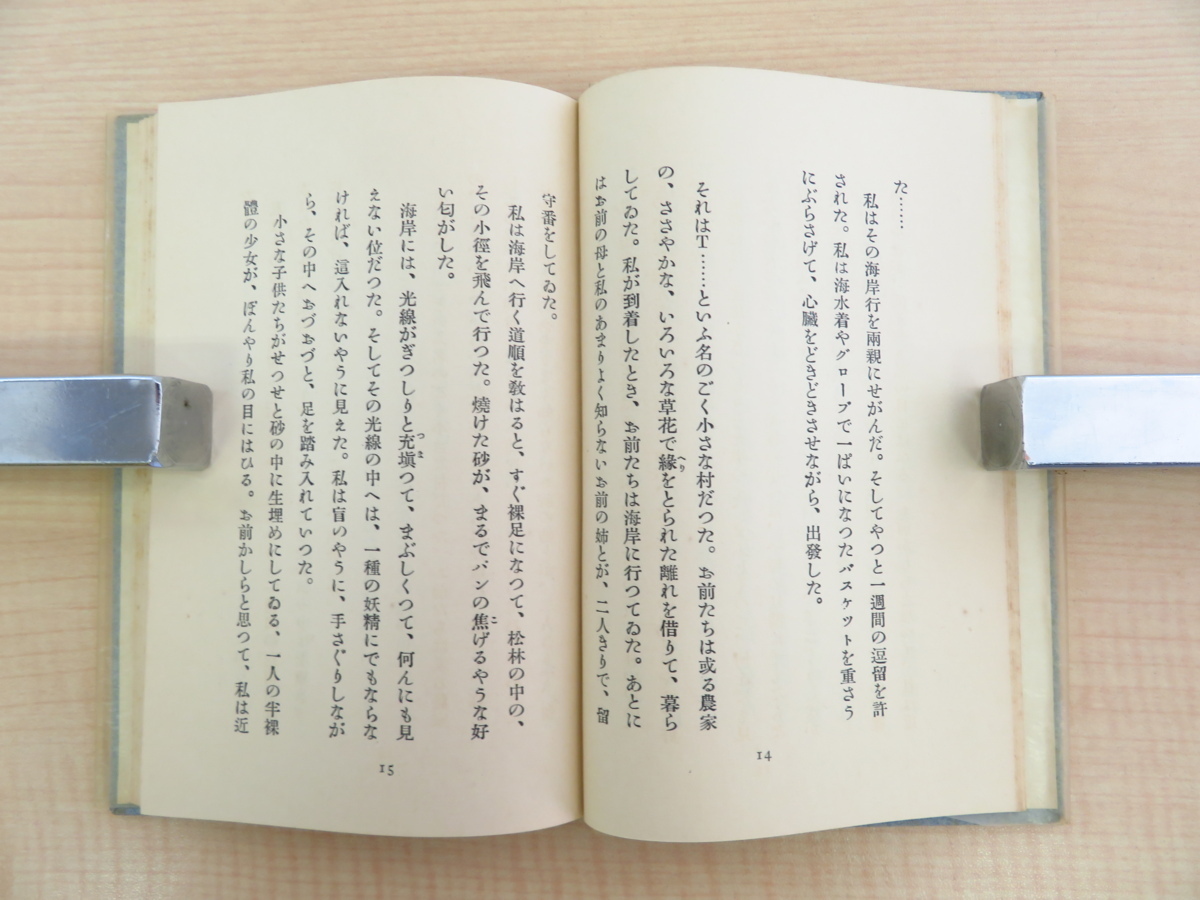 た……
私はその海岸行を兩親にせがんだ。そしてやつと一週間の逗留を許
された。私は海水着やグローブで一ぱいになつたバスケットを重さう
にぶらさげて、心臓をどきどきさせながら、出發した。
それはT……といふ名のごく小さな村だつた。お前たちは或る農家
の、ささやかな、いろいろな草花で緣をとられた離れを借りて、暮ら
してゐた。私が到着したとき、お前たちは海岸に行つてゐた。あとに
はお前の母と私のあまりよく知らないお前の姉とが、二人きりで、留
14
守番をしてゐた。
私は海岸へ行く道順を敎はると、すぐ裸足になつて、松林の中の、
その小徑を飛んで行つた。燒けた砂が、まるでパンの焦げるやうな好
い匂がした。
海岸には、光線がぎつしりと充塡つて、まぶしくつて、何んにも見
えない位だつた。そしてその光線の中へは、一種の妖精にでもならな
ければ、這入れないやうに見えた。私は盲のやうに、手さぐりしなが
ら、その中へおづおづと、足を踏み入れていつた。
小さな子供たちがせつせと砂の中に生埋めにしてゐる、一人の半裸
體の少女が、ぼんやり私の目にはひる。お前かしらと思つて、私は近
15